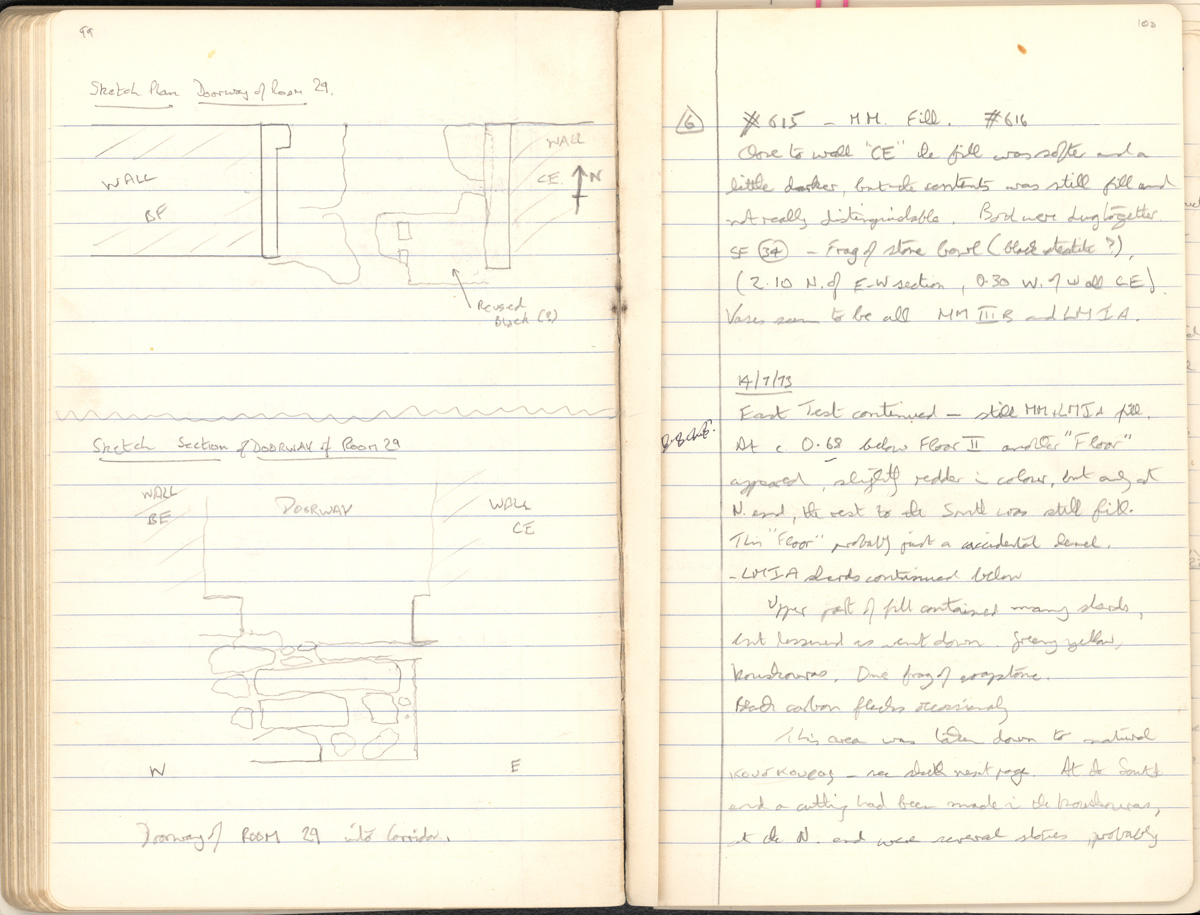 99
Sketch Plan Doorway of Room 29.
WALL
BF
WALL
CE.
N
Reused
Block (?)
Sketch Section of DOORWAY of ROOM 29
WALL
BE
DOORWAY
WALL
CE
W
E
Doorway of ROOM 29 into Corridor.
100
6
#615 - MM. Fill. #616
Close to wall "CE" the fill was softer and a
little darker, but the contents was still fill and
not really distinguishable. Both were dug together.
SF 34 - Frag of stone bowl (black steatite?),
(2.10 N. of E-W section, 0.30 W. of Wall CE).
Vases seem to be all MM III B and LM I A.
14/7/73
East Test continued - still MM + LM I A fill.
At c. 0.68 below Floor II another "Floor"
appeared, slightly redder in colour, but only at
N. end, the rest to the South was still fill.
This "Floor" probably just a accidental level.
- LM I A sherds continued below
Upper part of fill contained many sherds,
but lessened as went down. Greeny yellow,
kouskouras. One frag of soapstone.
Black carbon flecks occasionally
This area was taken down to natural
κουσκουρας - see sketch next page. At the South
end a cutting had been made in the kouskouras,
at the N. end were several stones, probably